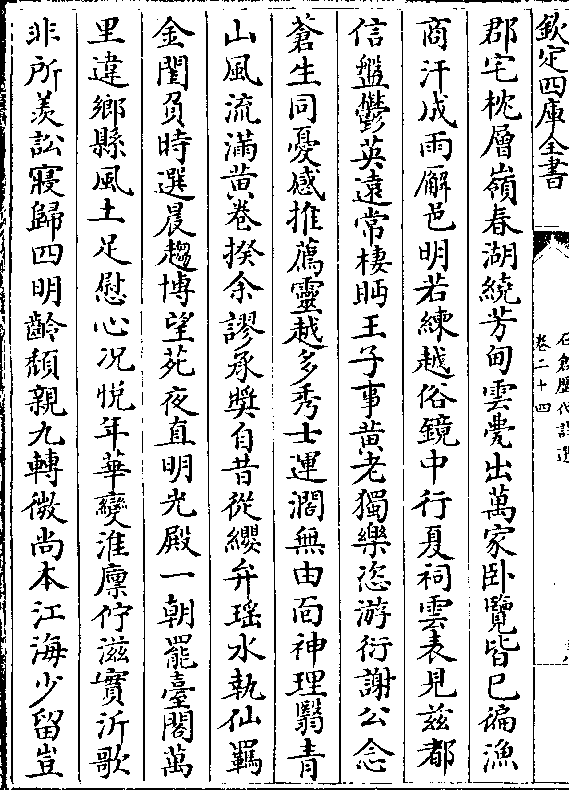 欽定四庫全書
石倉歷代詩選
卷二十四
郡宅枕層嶺春湖繞芳甸雲甍出萬家卧覽皆已徧漁
商汗成雨廨邑明若練越俗鏡中行夏祠雲表見兹都
信盤鬱英遠常棲眄王子事黃老獨樂恣游衍謝公念
蒼生同憂感推薦靈越多秀士運濶無由面神理翳青
山風流滿黃卷揆余謬承奬自昔從纓弁瑤水執仙羈
金閨負時選晨趨博望苑夜直明光殿一朝罷臺閣萬
里違鄉縣風土足慰心况悅年華變淮廪佇滋實沂歌
非所羨訟寢歸四明齡頽親九轉微尚本江海少留豈